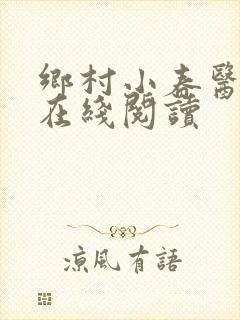 鄉村小春醫
在綫閱讀
涼風有語